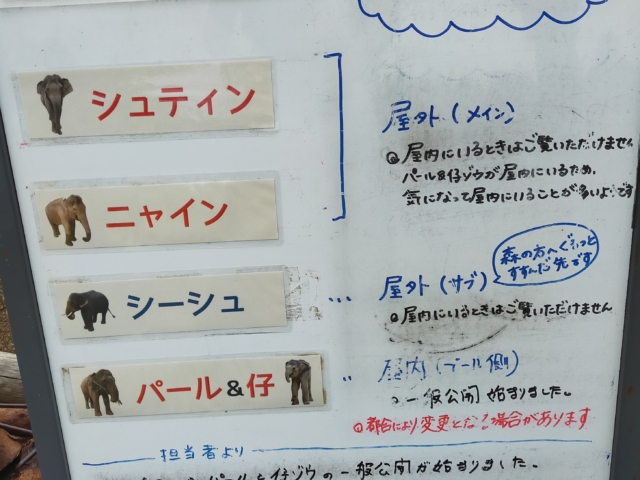 シュティン
屋外(メイン)
◎屋内にいるときはご覧いただけません
パール&仔ゾウが屋内にいるため、
気になって屋内にいることが多いようです
ニャイン
森の方へぐるっと
すすんだ先です
シーシュ
… 屋外(サブ)
◎屋内にいるときはご覧いただけません
パール&仔
‥ 屋内(プール側)
◎一般公開始まりました。
◎都合により変更となる場合があります
担当者より
パールと仔ゾウの一般公開が始まりました。